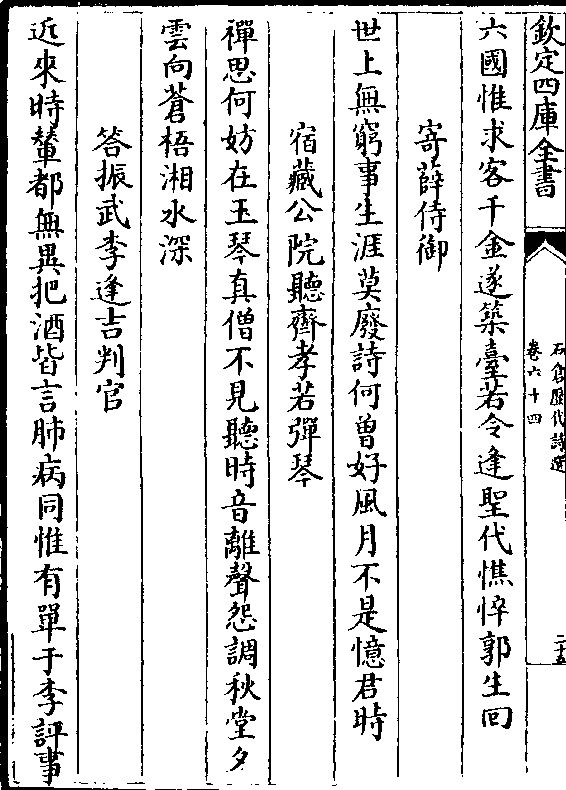 欽定四庫全書
石倉歷代詩選
卷六十四
二十五
六國惟求客千金遂築臺若令逢聖代憔悴郭生回
寄薛侍御
世上無窮事生涯莫廢詩何曾好風月不是憶君時
宿藏公院聽齊孝若彈琴
禪思何妨在玉琴真僧不見聽時音離聲怨調秋堂夕
雲向蒼梧湘水深
答振武李逢吉判官
近來時輩都無異把酒皆言肺病同惟有單于李評事